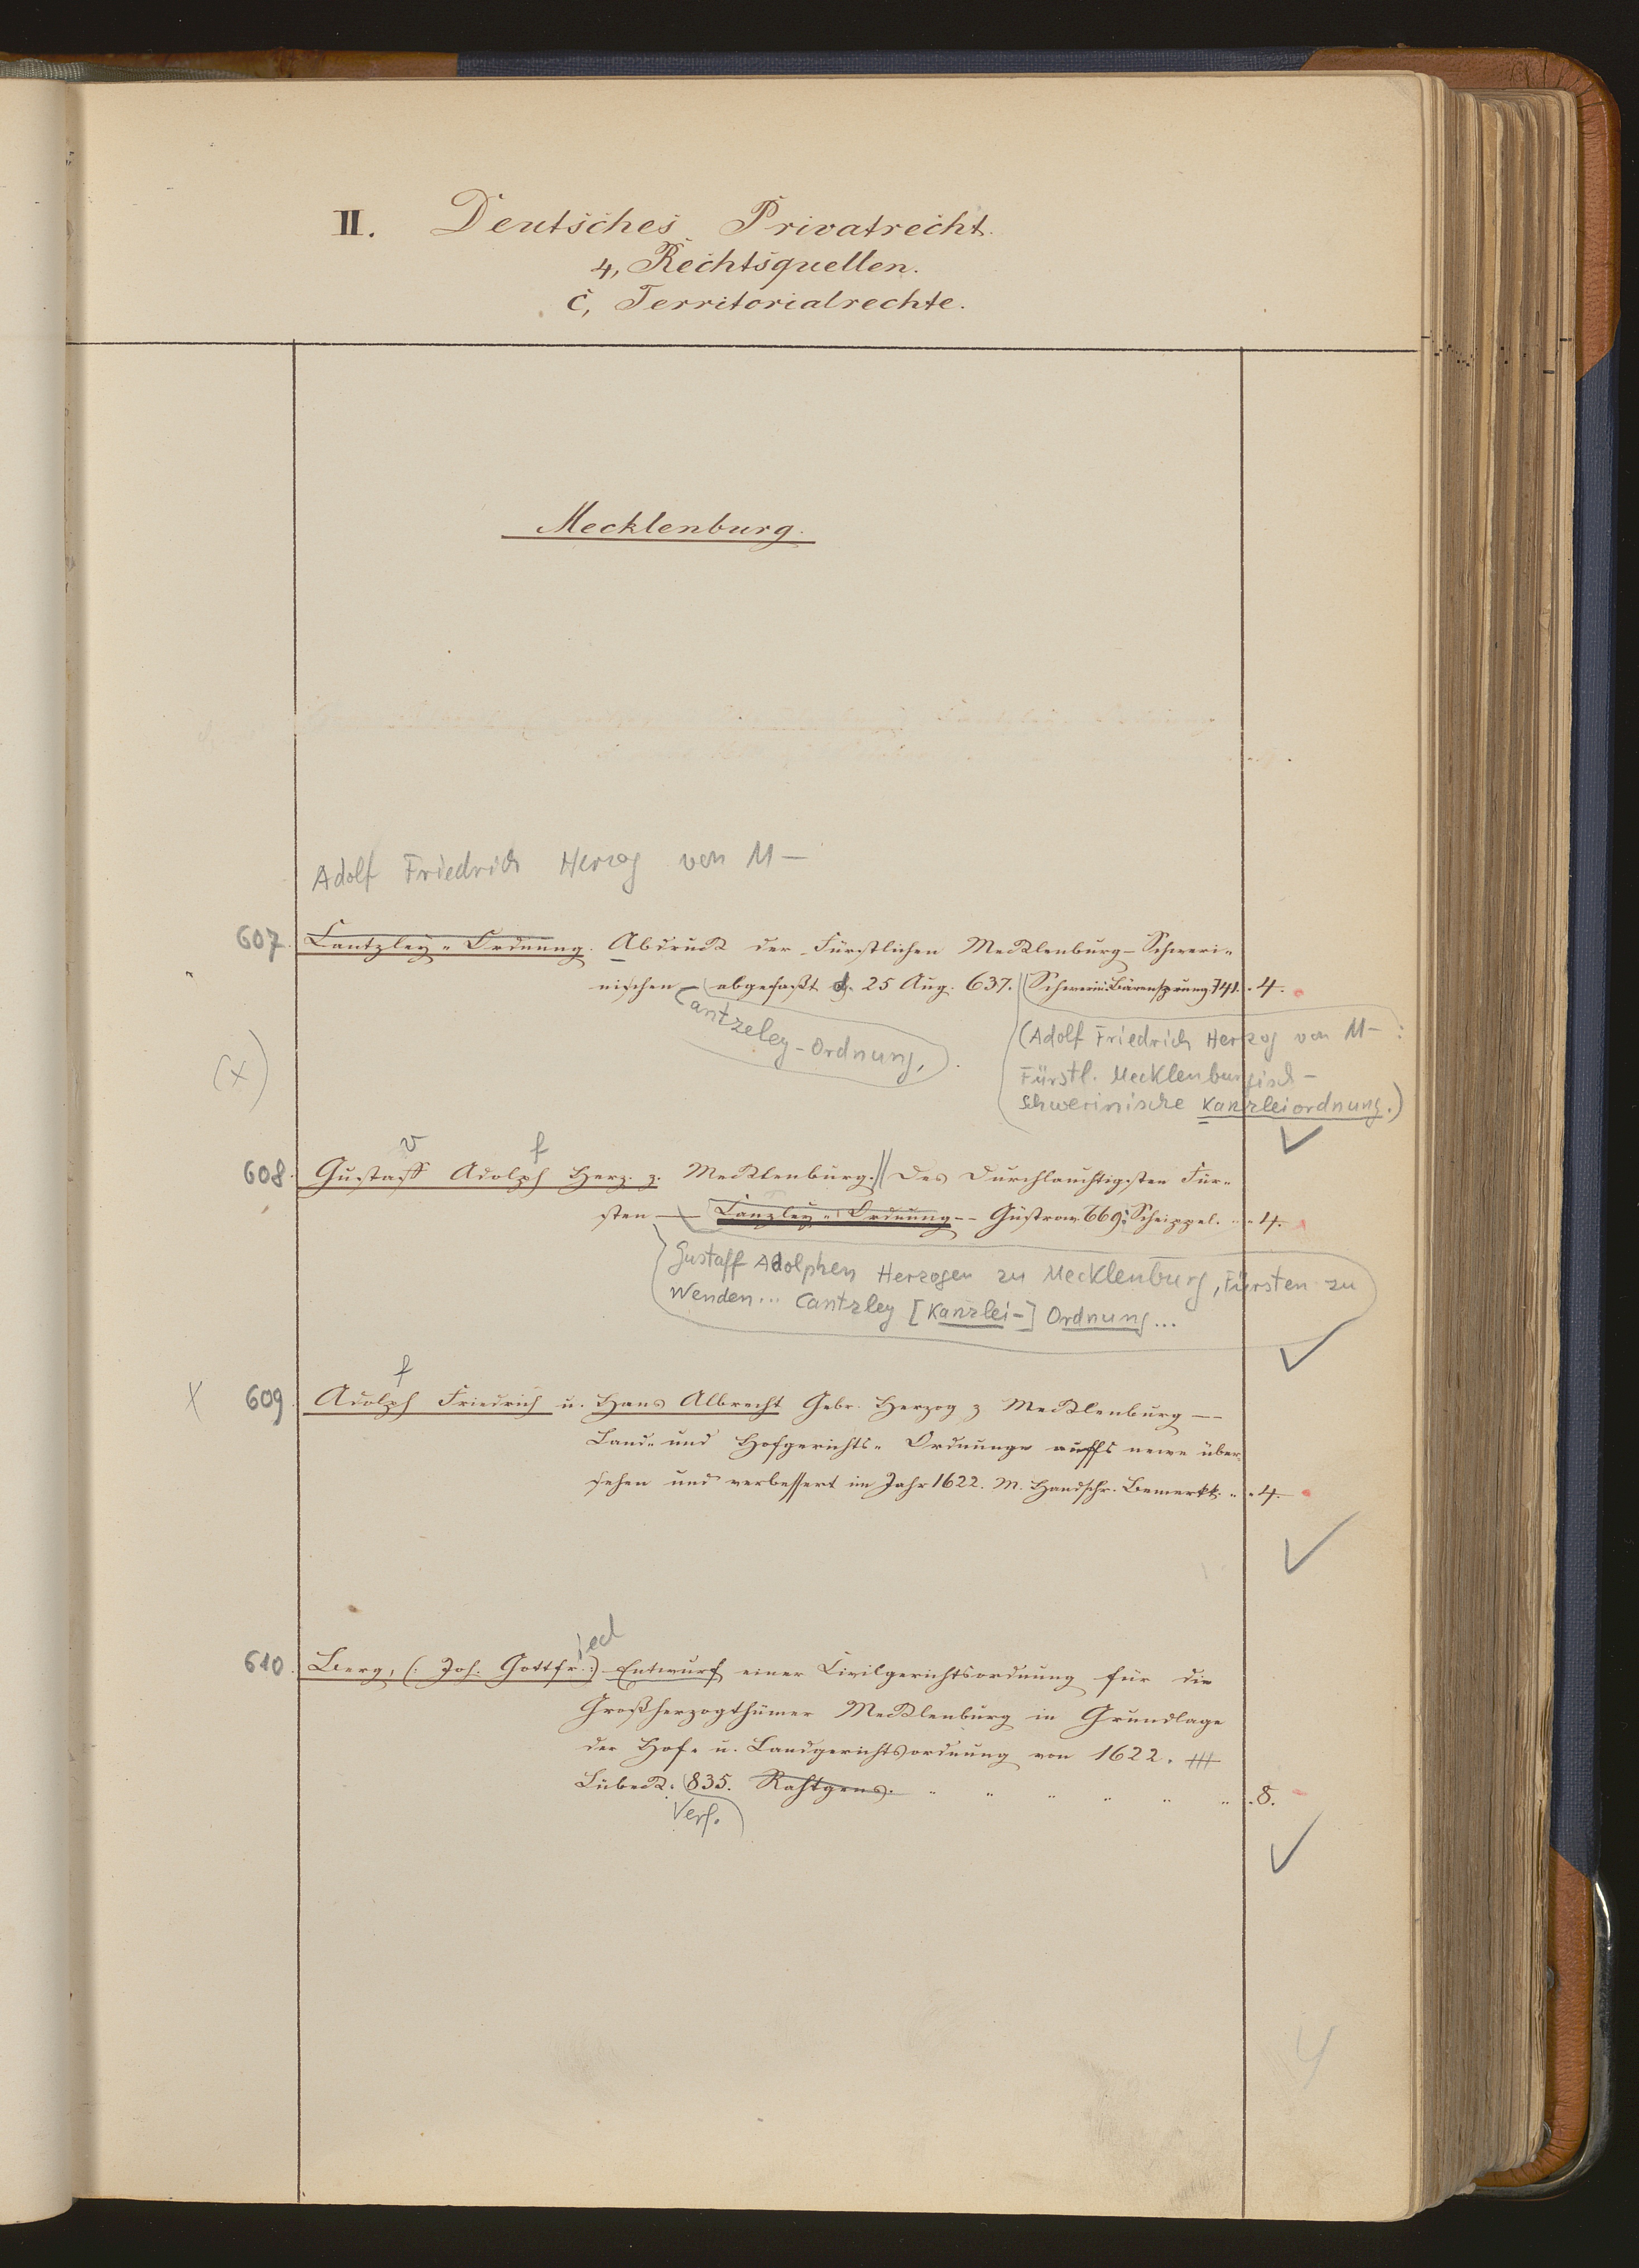 II. Deutsches Privatrecht.
4, Rechtsquellen.
c, Territorialrechte.
Mecklenburg.
Adolf Friedrich Herzog von M—
607. Cantzley-Ordnung. Abdruck der Fürstlichen Mecklenburg-Schweri-
nischen — abgefaßt d. 25 Aug. 637. Schwerin: Bärensprung 741. 4.
Cantzeley-Ordnung,
(Adolf Friedrich Herzog von M— :
Fürstl. Mecklenburgisch-
Schwerinische Kanzleiordnung.)
(x)
v f
608. Gustaff Adolph Herz. z. Mecklenburg. Des Durchlauchtigsten Für-
sten — Canzley-Ordnung -- Güstrow 669: Scheippel. 4.
Gustaff Adolphen Herzogen zu Mecklenburg, Fürsten zu
Wenden... Cantzley [Kanzlei-] Ordnung...
f
x 609. Adolph Friedrich u. Hans Albrecht Gebr. Herzog z Mecklenburg --
Land- und Hofgerichts-Ordnunge auffs newe über-
sehen und verbessert im Jahr 1622. M. Handschr. Bemerkk. 4.
ied
610. Berg, (: Joh. Gottfr. :) Entwurf einer Civilgerichtsordnung für die
Großherzogthümer Mecklenburg in Grundlage
der Hof- u. Landgerichtsordnung von 1622.
Lübeck: 835. Rahtgens. 8.
Verf.
4